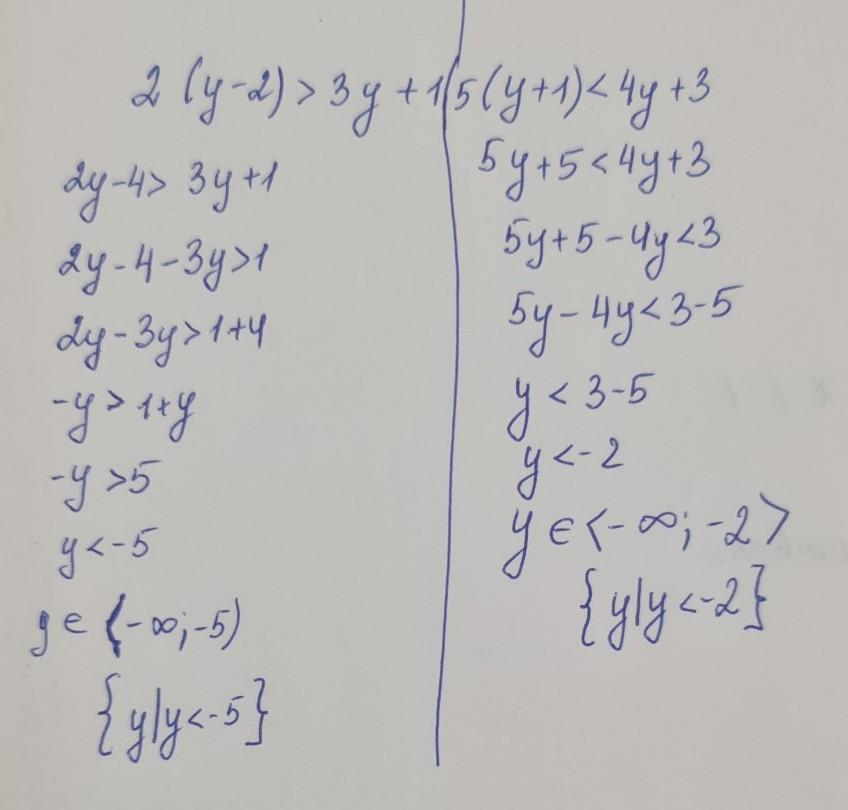 2 (y-2) > 3y + 1
2y-4 > 3y+1
2y - 4 - 3y > 1
2y - 3y > 1+4
-y > 1+y
-y > 5
y < -5
y ∈ (-∞; -5)
{y|y<-5}
5(y+1) < 4y+3
5y+5 < 4y+3
5y+5 - 4y < 3
5y - 4y < 3-5
y < 3-5
y < -2
y ∈ ⟨-∞; -2⟩
{y|y<-2}